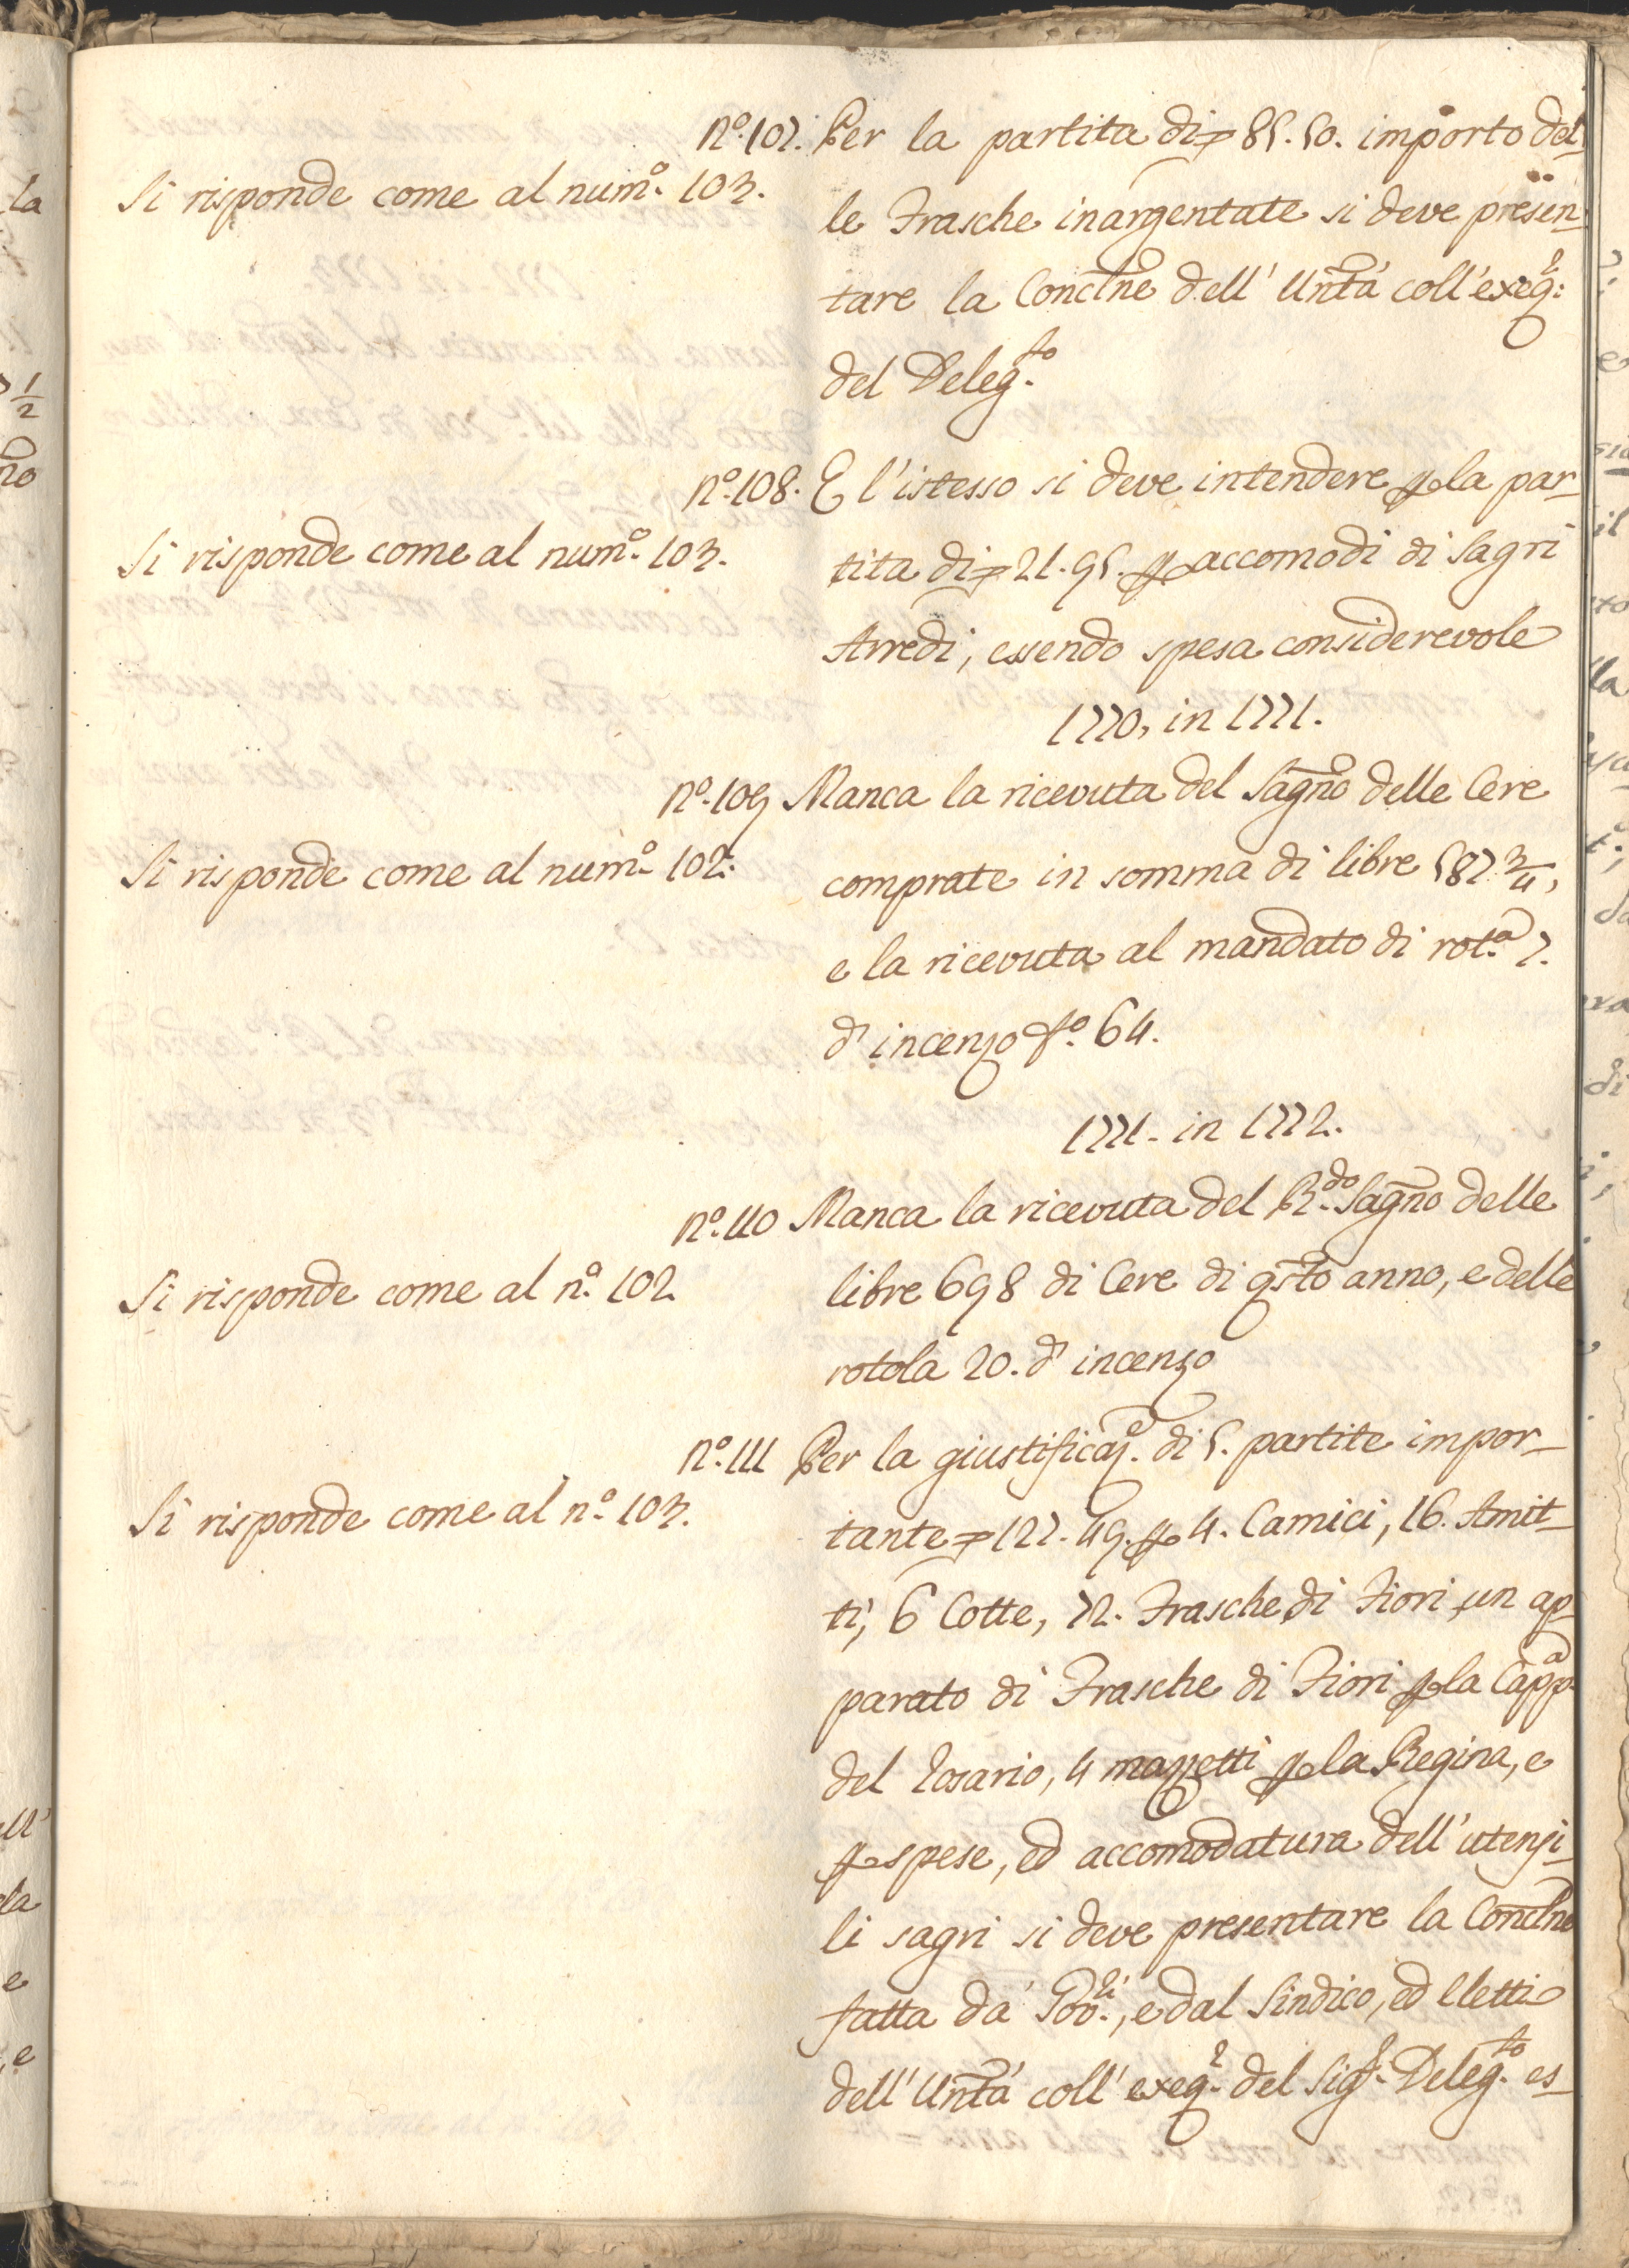 nº. 107. Per la partita di 85.50. importo del-
Si risponde come al numº. 103.
le Frasche inargentate si deve presen-
tare la Conclne dell' Untà coll'exeq:
del Deleg.to
nº. 108. E l'istesso si deve intendere p la par-
Si risponde come al numº. 103.
tita di 21.95. p accomodi di Sagri
Arredi, essendo spesa considerevole
1770, in 1771.
nº. 109 Manca la ricevuta del Sagno delle Cere
Si risponde come al numº. 102.
comprate in somma di libre 587 3/4,
e la ricevuta al mandato di rot.a 7.
d' incenzo fº. 64.
1771. in 1772.
nº. 110 Manca la ricevuta del R.do Sagno delle
Si risponde come al nº. 102
libre 698 di Cere di qsto anno, e delle
rotola 20. d' incenzo
nº. 111 Per la giustificaz.e di 5. partite impor-
Si risponde come al nº. 103.
tante 127.49. p 4. Camici, 16. Amit-
ti, 6 Cotte, 72. Frasche di Fiori, un ap-
parato di Frasche di Fiori p la Capp.a
del Rosario, 4 mazzetti p la Regina, e
p spese, ed accomodatura dell' utensi-
li sagri si deve presentare la Conclne
fatta da' Gov.ri, e dal Sindico, ed Eletti
dell' Untà coll' exeq. del Sig.r Deleg.to es-